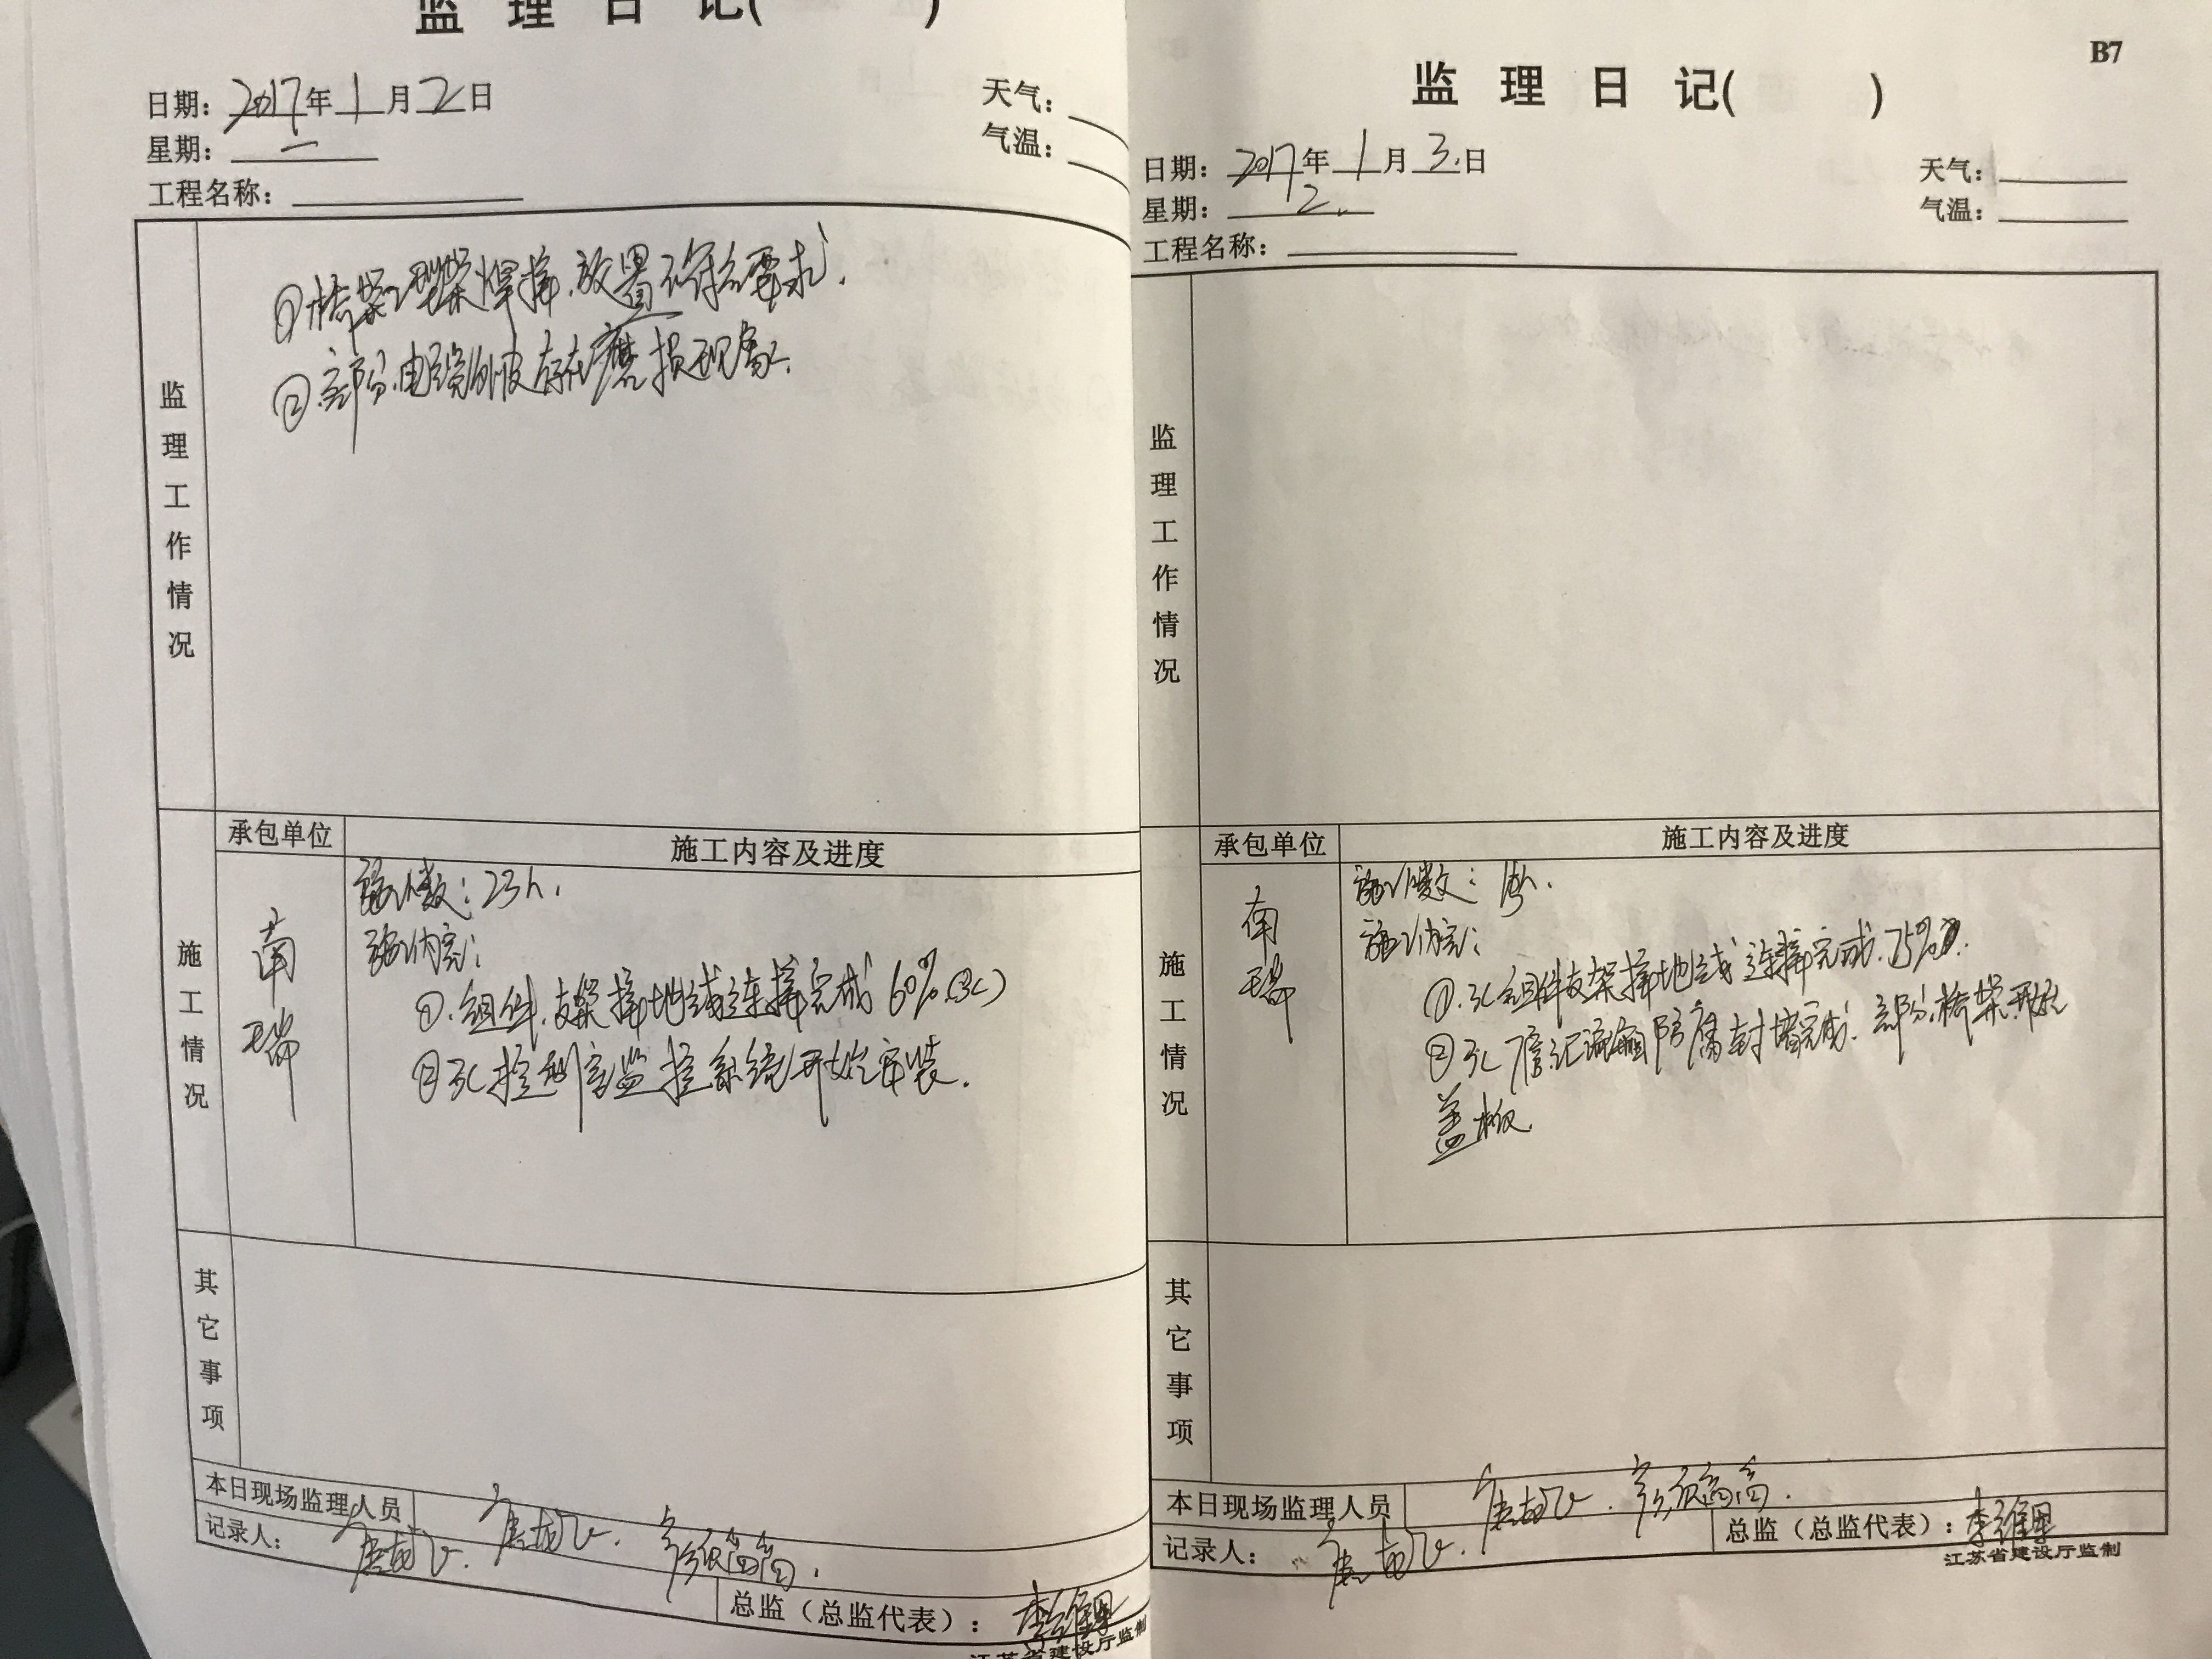 监 理 日 记( )
日期：2017年1月2日
天气：
星期：一
气温：
工程名称：
监理工作情况
①桥架、支架焊接、放置不符合要求.
②部分电缆外皮存在磨损现象.
承包单位
施工内容及进度
施工情况
南瑞
施工人数：23人.
施工内容：
①.组件.支架接地线连接完成60%.(3C)
②3C控制室监控系统开始安装.
其它事项
本日现场监理人员
记录人：
总监（总监代表）：
江苏省建设厅监制
B7
监 理 日 记( )
日期：2017年1月3日
天气：
星期：2
气温：
工程名称：
监理工作情况
承包单位
施工内容及进度
施工情况
南瑞
施工人数：
施工内容：
①.3C组件支架接地线连接完成75%.
②3C 防腐封堵完成.部分桥架开始
盖板.
其它事项
本日现场监理人员
记录人：
总监（总监代表）：
江苏省建设厅监制